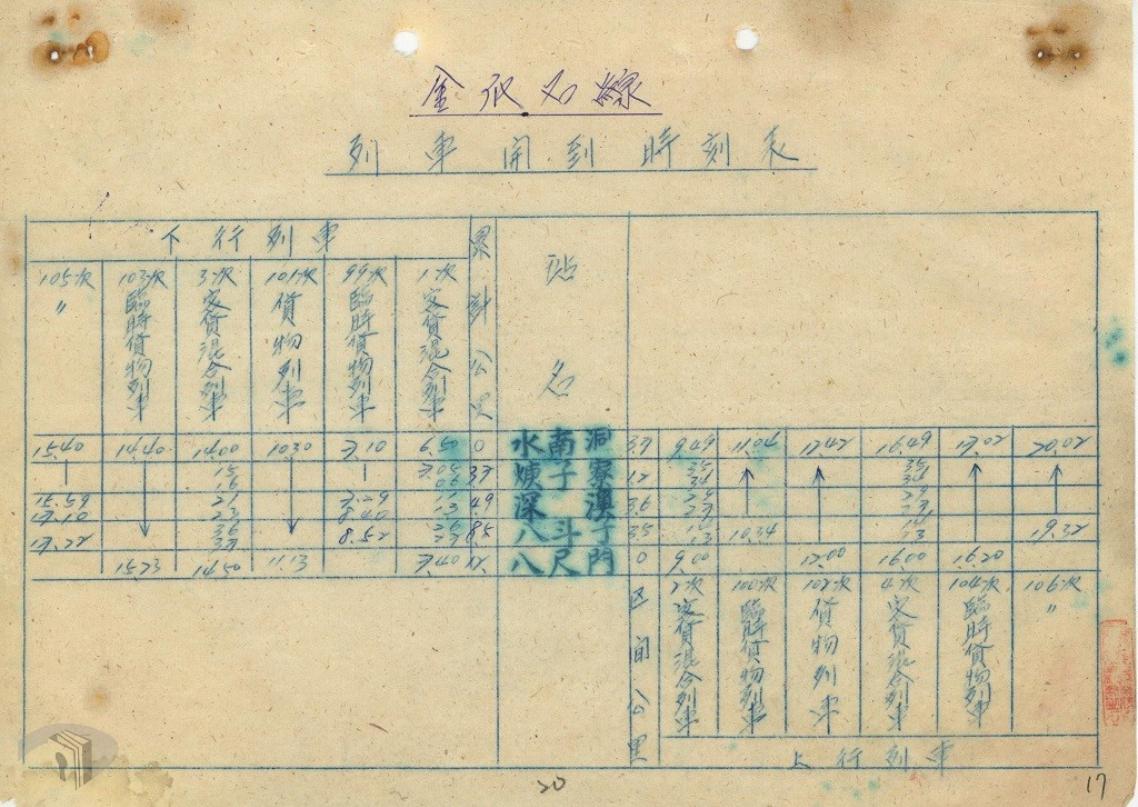 金瓜石線
列車開到時刻表
下行列車
累計公里
站名
105次 103次 3次 101次 99次 1次
〃 臨時貨物列車 客貨混合列車 貨物列車 臨時貨物列車 客貨混合列車
15.40 14.40 14.00 10.30 7.10 6.50 0 水南洞 3.7 9.49 11.04 12.42 16.49 17.02 20.02
煉子寮
15.59 21 7.29 11 4.9 深澳 3.6
17.10 23 13
17.22 36 8.52 26 8.5 八斗子 3.5 10.34 19.32
15.23 14.50 11.13 7.40 12. 八尺門 0 9.00 12.00 16.00 16.20
2次 100次 102次 4次 104次 106次
客貨混合列車 臨時貨物列車 貨物列車 客貨混合列車 臨時貨物列車 〃
区间公里
上行列車
20
17